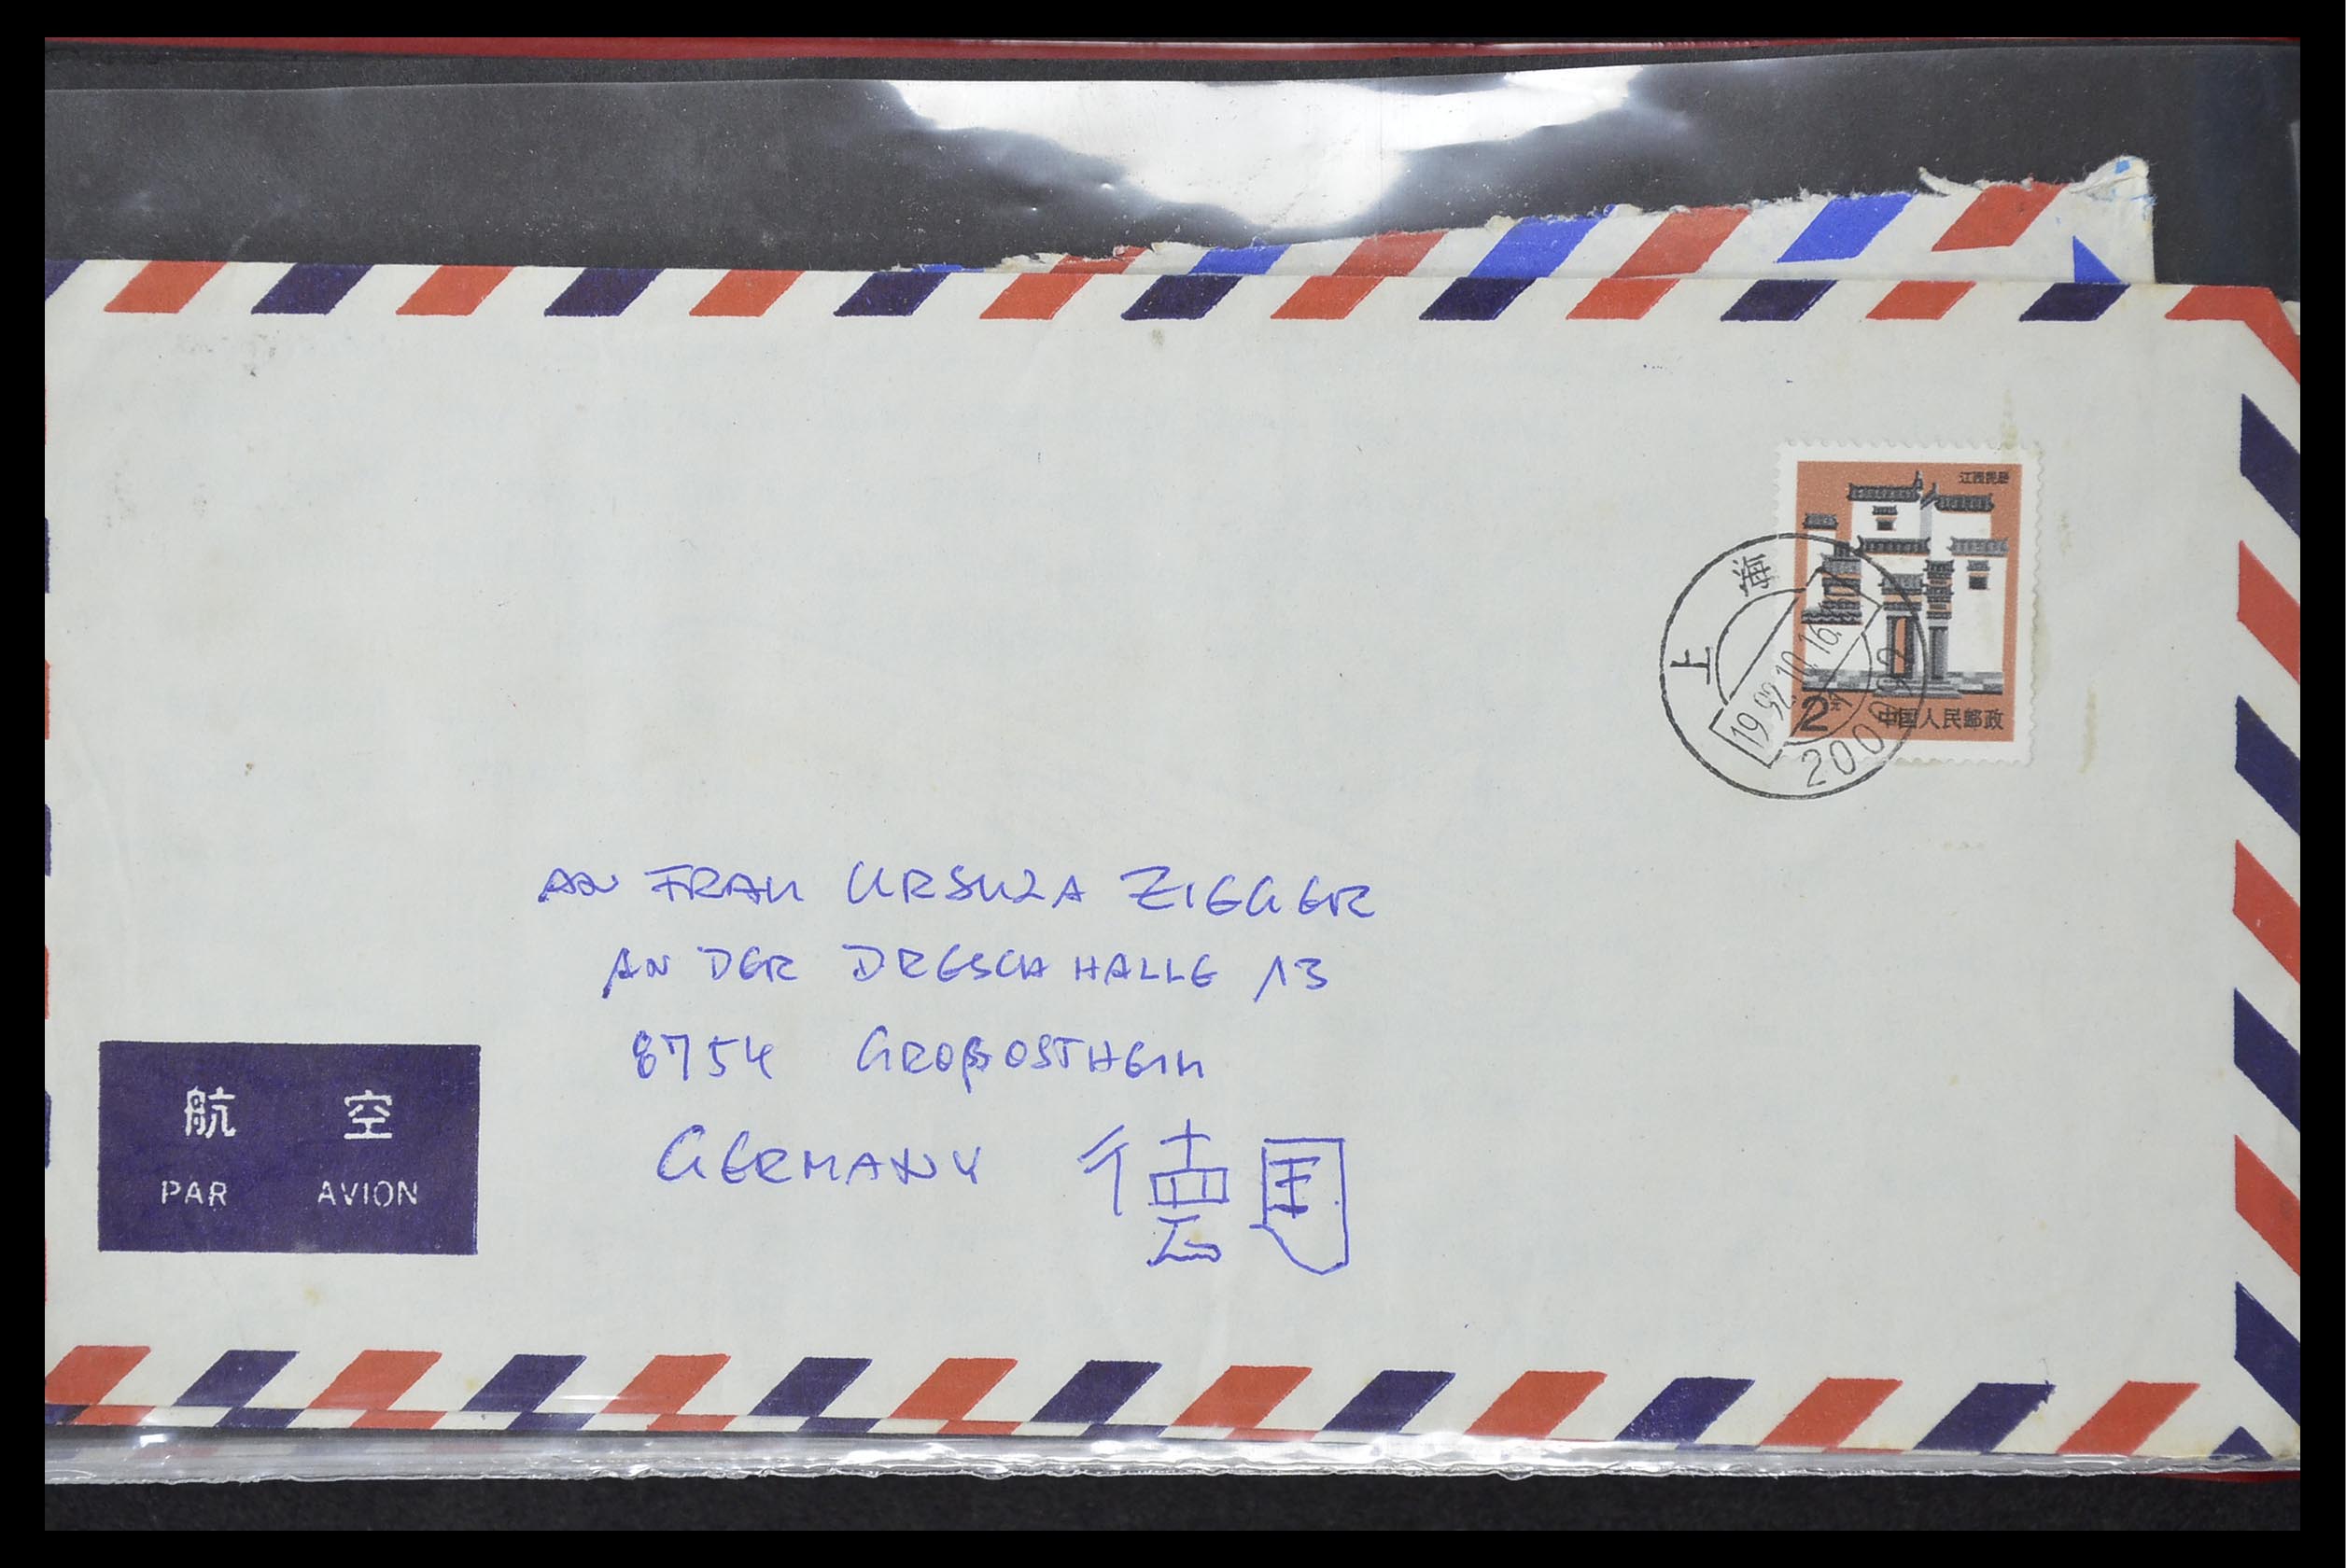 江西民居
上海
1992.10.16.
2元
中国人民邮政
AN FRAU URSULA ZIEGER
AN DER DRESCHHALLE 13
8754 GROßOSTHEIM
GERMANY 德国
航空
PAR AVION